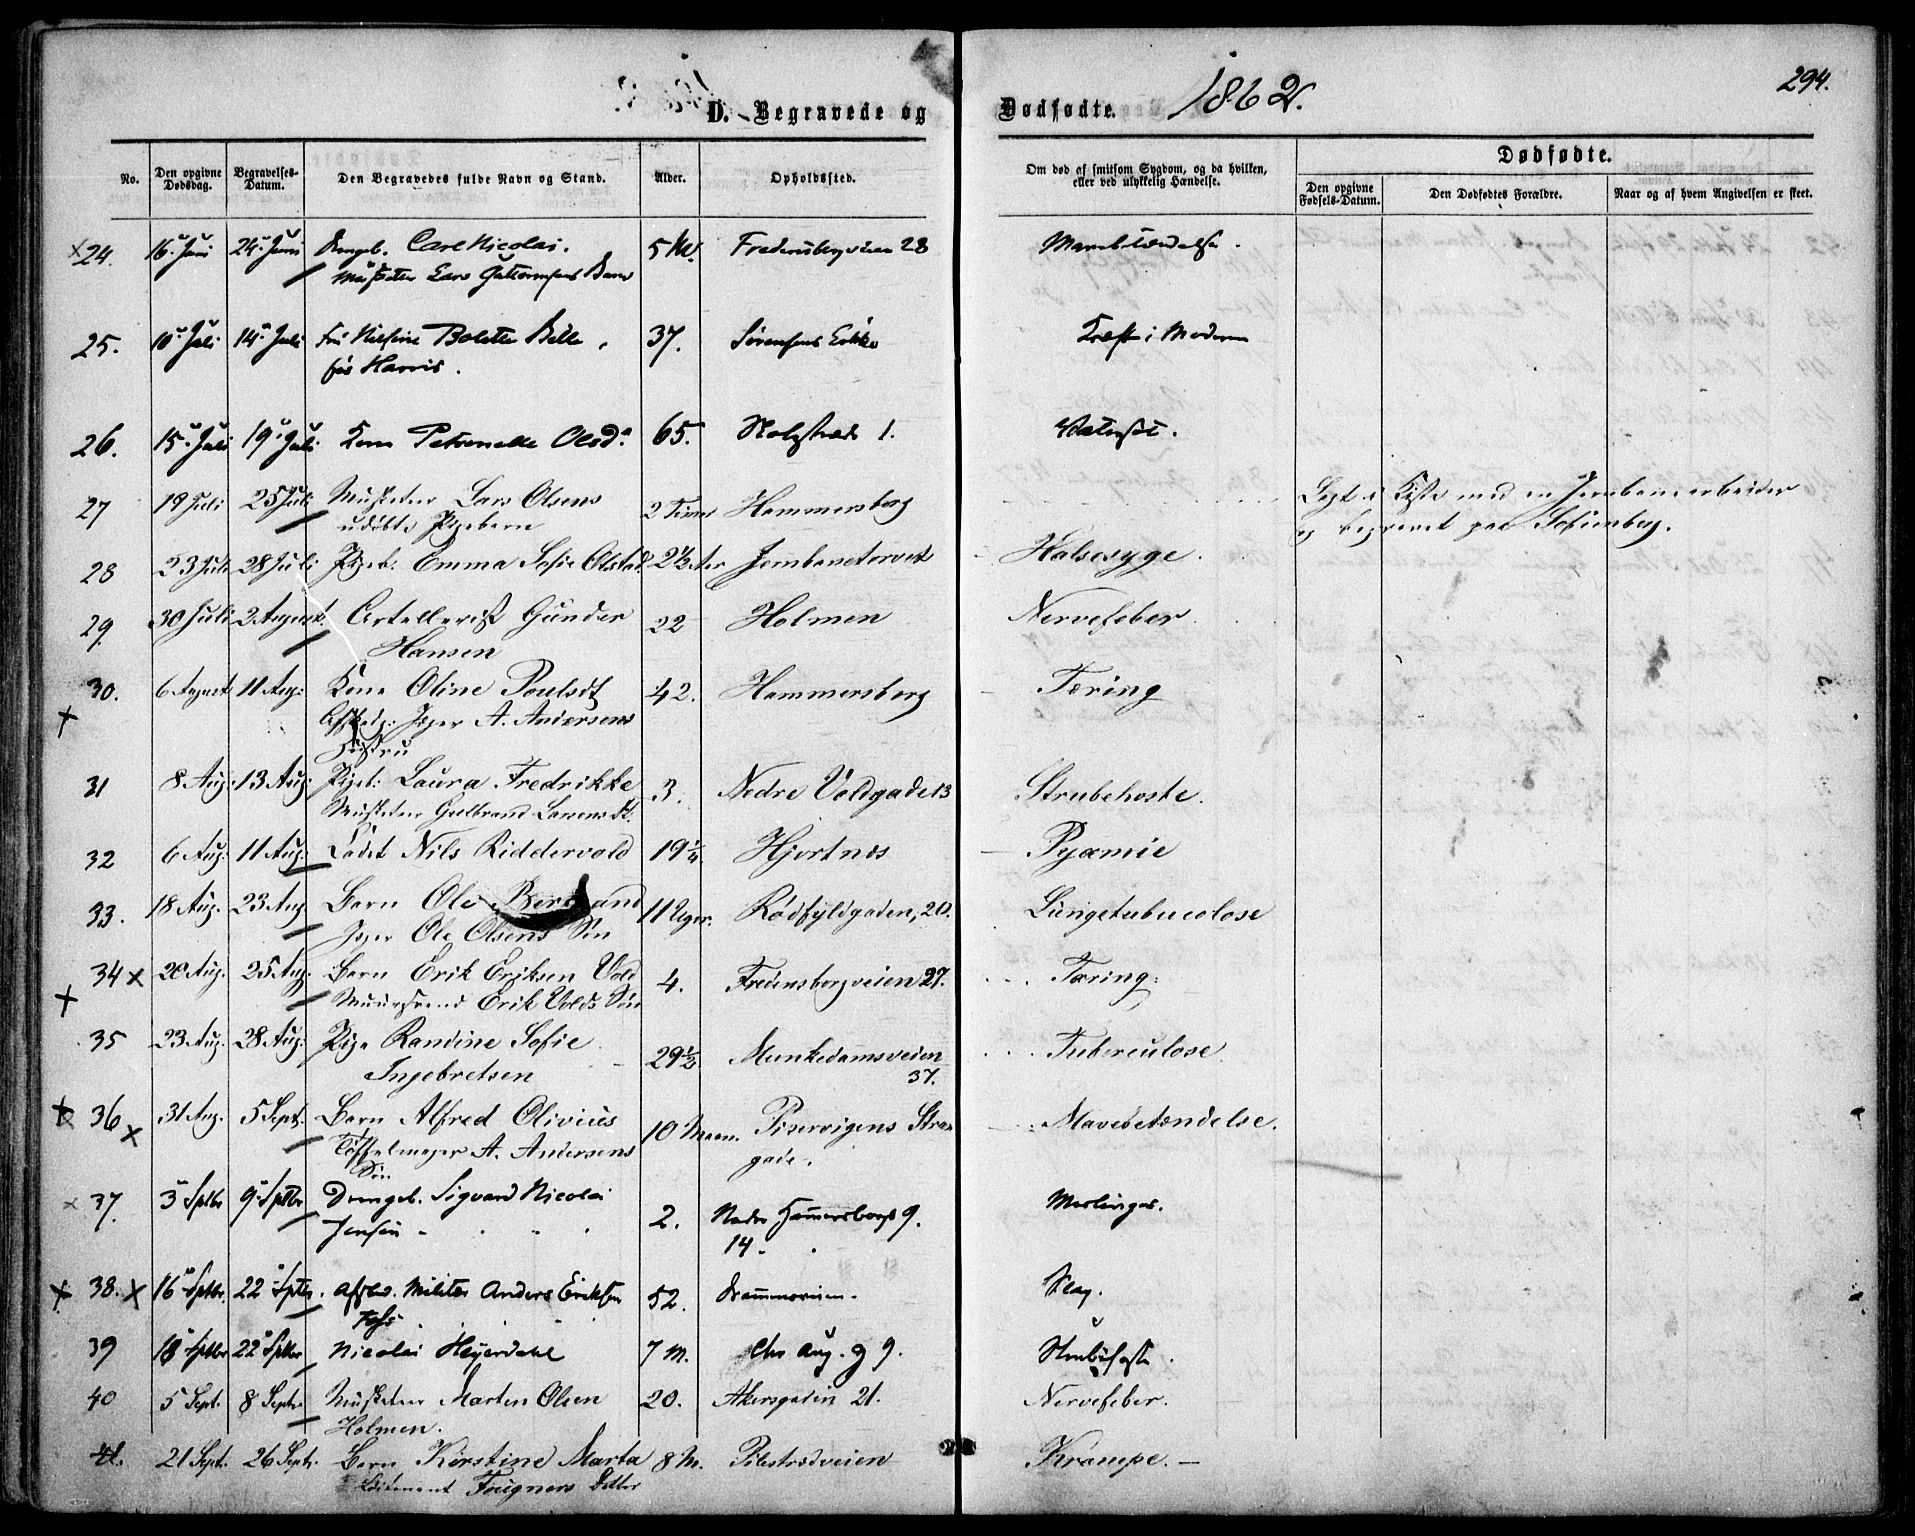 294.
D. Begravede og Dødfødte. 1862.
No. Den opgivne Dødsdag. Begravelses-Datum. Den Begravedes fulde Navn og Stand. Alder. Opholdssted. Om død af smitsom Sygdom, og da hvilken, eller ved ulykkelig Hændelse.
Dødfødte.
Den opgivne Fødsels-Datum. Den Dødfødtes Forældre. Naar og af hvem Angivelsen er skeet.
24. 16 Juni 24 Juni Drngb. Carl Nicolai. 5 M. 28
Lars Guttormsens Barn
25. 10 Juli 14 Juli Fru Nilsine Bolette Bille, 37. Sørensens Kræft i
fød Harris.
26. 15 Juli 19 Juli Kone Petronelle Olsd. 65. 1. Vatersot.
27 19 Juli 25 Juli Musketeer Lars Olsens 2 Timer Hammersborg Lagt i Kiste med en Jernbanearbeider
udøbte Pigebarn og begravet paa Sofienberg.
28 23 Juli 28 Juli Pigeb. Emma Sofie Olstad 2½ Aar Jernbanetorvet Halssyge.
29. 30 Juli 2 August Artellerist Gunder 22 Holmen Nervefeber.
Hansen
30. 6 August 11 Aug: Kone Oline Poulsdt 42. Hammersborg Tæring
Afskedg. Jæger A. Andersens
Hustru
31 8 Aug: 13 Aug: Pigeb: Laura Fredrikke 3. Nedre Voldgade 13 Strubehoste.
Musketeer Gulbrand Larsens Dt.
32 6 Aug: 11 Aug: Cadet Nils Riddervold 19¼ Hjortnes Pyæmie
33. 18 Aug. 23 Aug. Barn Ole 11 Uger. Rødfyldgaden, 20. Lungetuberculose
Jæger Ole Olsens Søn
34 x 20 Aug. 25 Aug. Barn Erik Eriksen Vold 4. Fredensborgveien 27. Tæring.
Muursvend Erik Volds Søn
35 23 Aug. 28 Aug. Pige Randine Sofie 29½ Munkedamsveien Tuberculose.
Ingebretsen 37.
36 x 31 Aug. 5 Sept. Barn Alfred Olivius 10 Maan. Pipervigens Strand- Mavebetændelse.
Tøffelmager A. Andersens gade.
Søn
37. 3 Sptbr 9 Sptbr Drengeb. Sigvard Nicolai Meslinger.
Jensen 2. Nedre Hammersborg 9.
14.
38. x 16 Sptbr. 22 Sptbr. Afskd. Militær Anders Eriksen 52. Drammensveien. Slag.
Foss
39 18 Sptbr 22 Sptbr Nicolai Heyerdahl 7 M. Chr Aug. g 9. Strubehoste.
40 5 Sept. 8 Septr. Musketeer Marten Olsen 20. Akersgaden 21. Nervefeber.
Holmen.
41. 21 Sept. 26 Sept. Barn Kirstine Marta 8 M. Pilestrædveien Krampe. —
Løitenant Fougners Datter